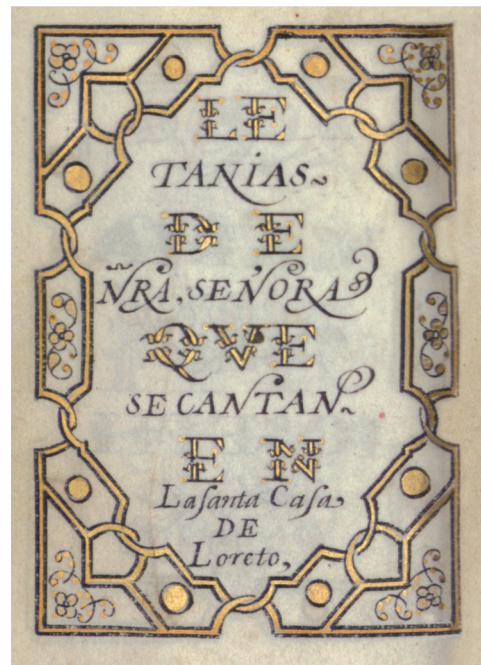 LE
TANIAS
DE
ÑRA, SEÑORA
QVE
SE CANTAN
EN
La santa Casa
DE
Loreto,